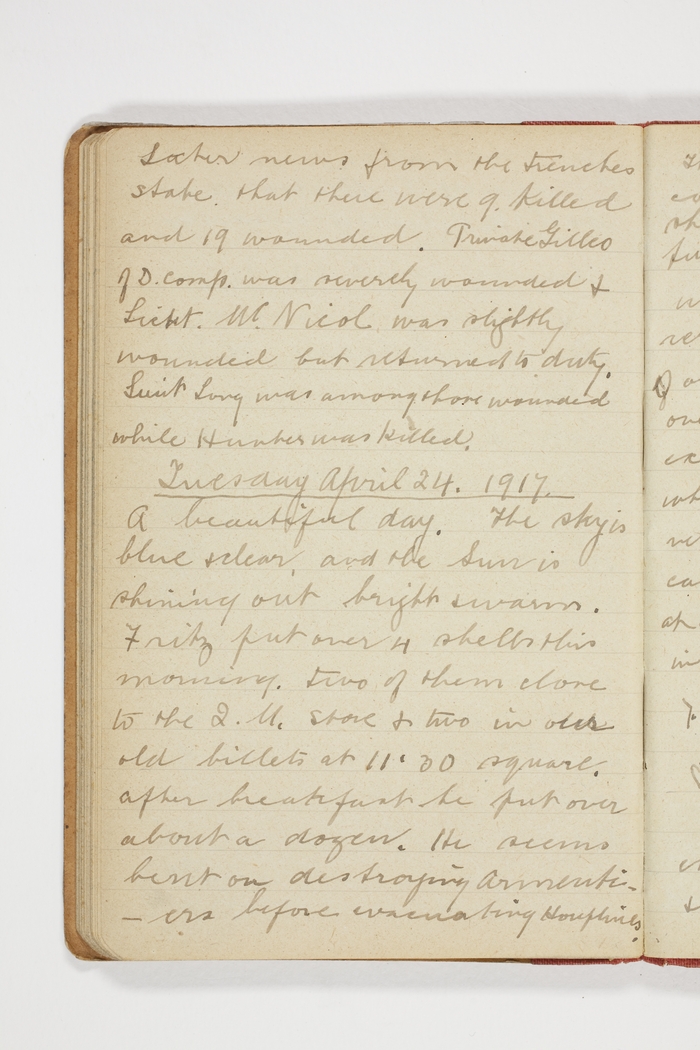 Later news from the trenches
state that there were 9 killed
and 19 wounded. Private Gilleo
of D. comp. was severely wounded &
Lieut. Mc Nicol was slightly
wounded but returned to duty.
Lieut Long was among those wounded
while Hunter was killed.
Tuesday April 24. 1917.
A beautiful day. The sky is
blue & clear, and the Sun is
shining out bright & warm.
Fritz put over 4 shells this
morning. two of them close
to the Q. M. store & two in our
old billets at 11.30 square.
after breakfast he put over
about a dozen. He seems
bent on destroying Armenti-
-ers before evacuating Houplines.